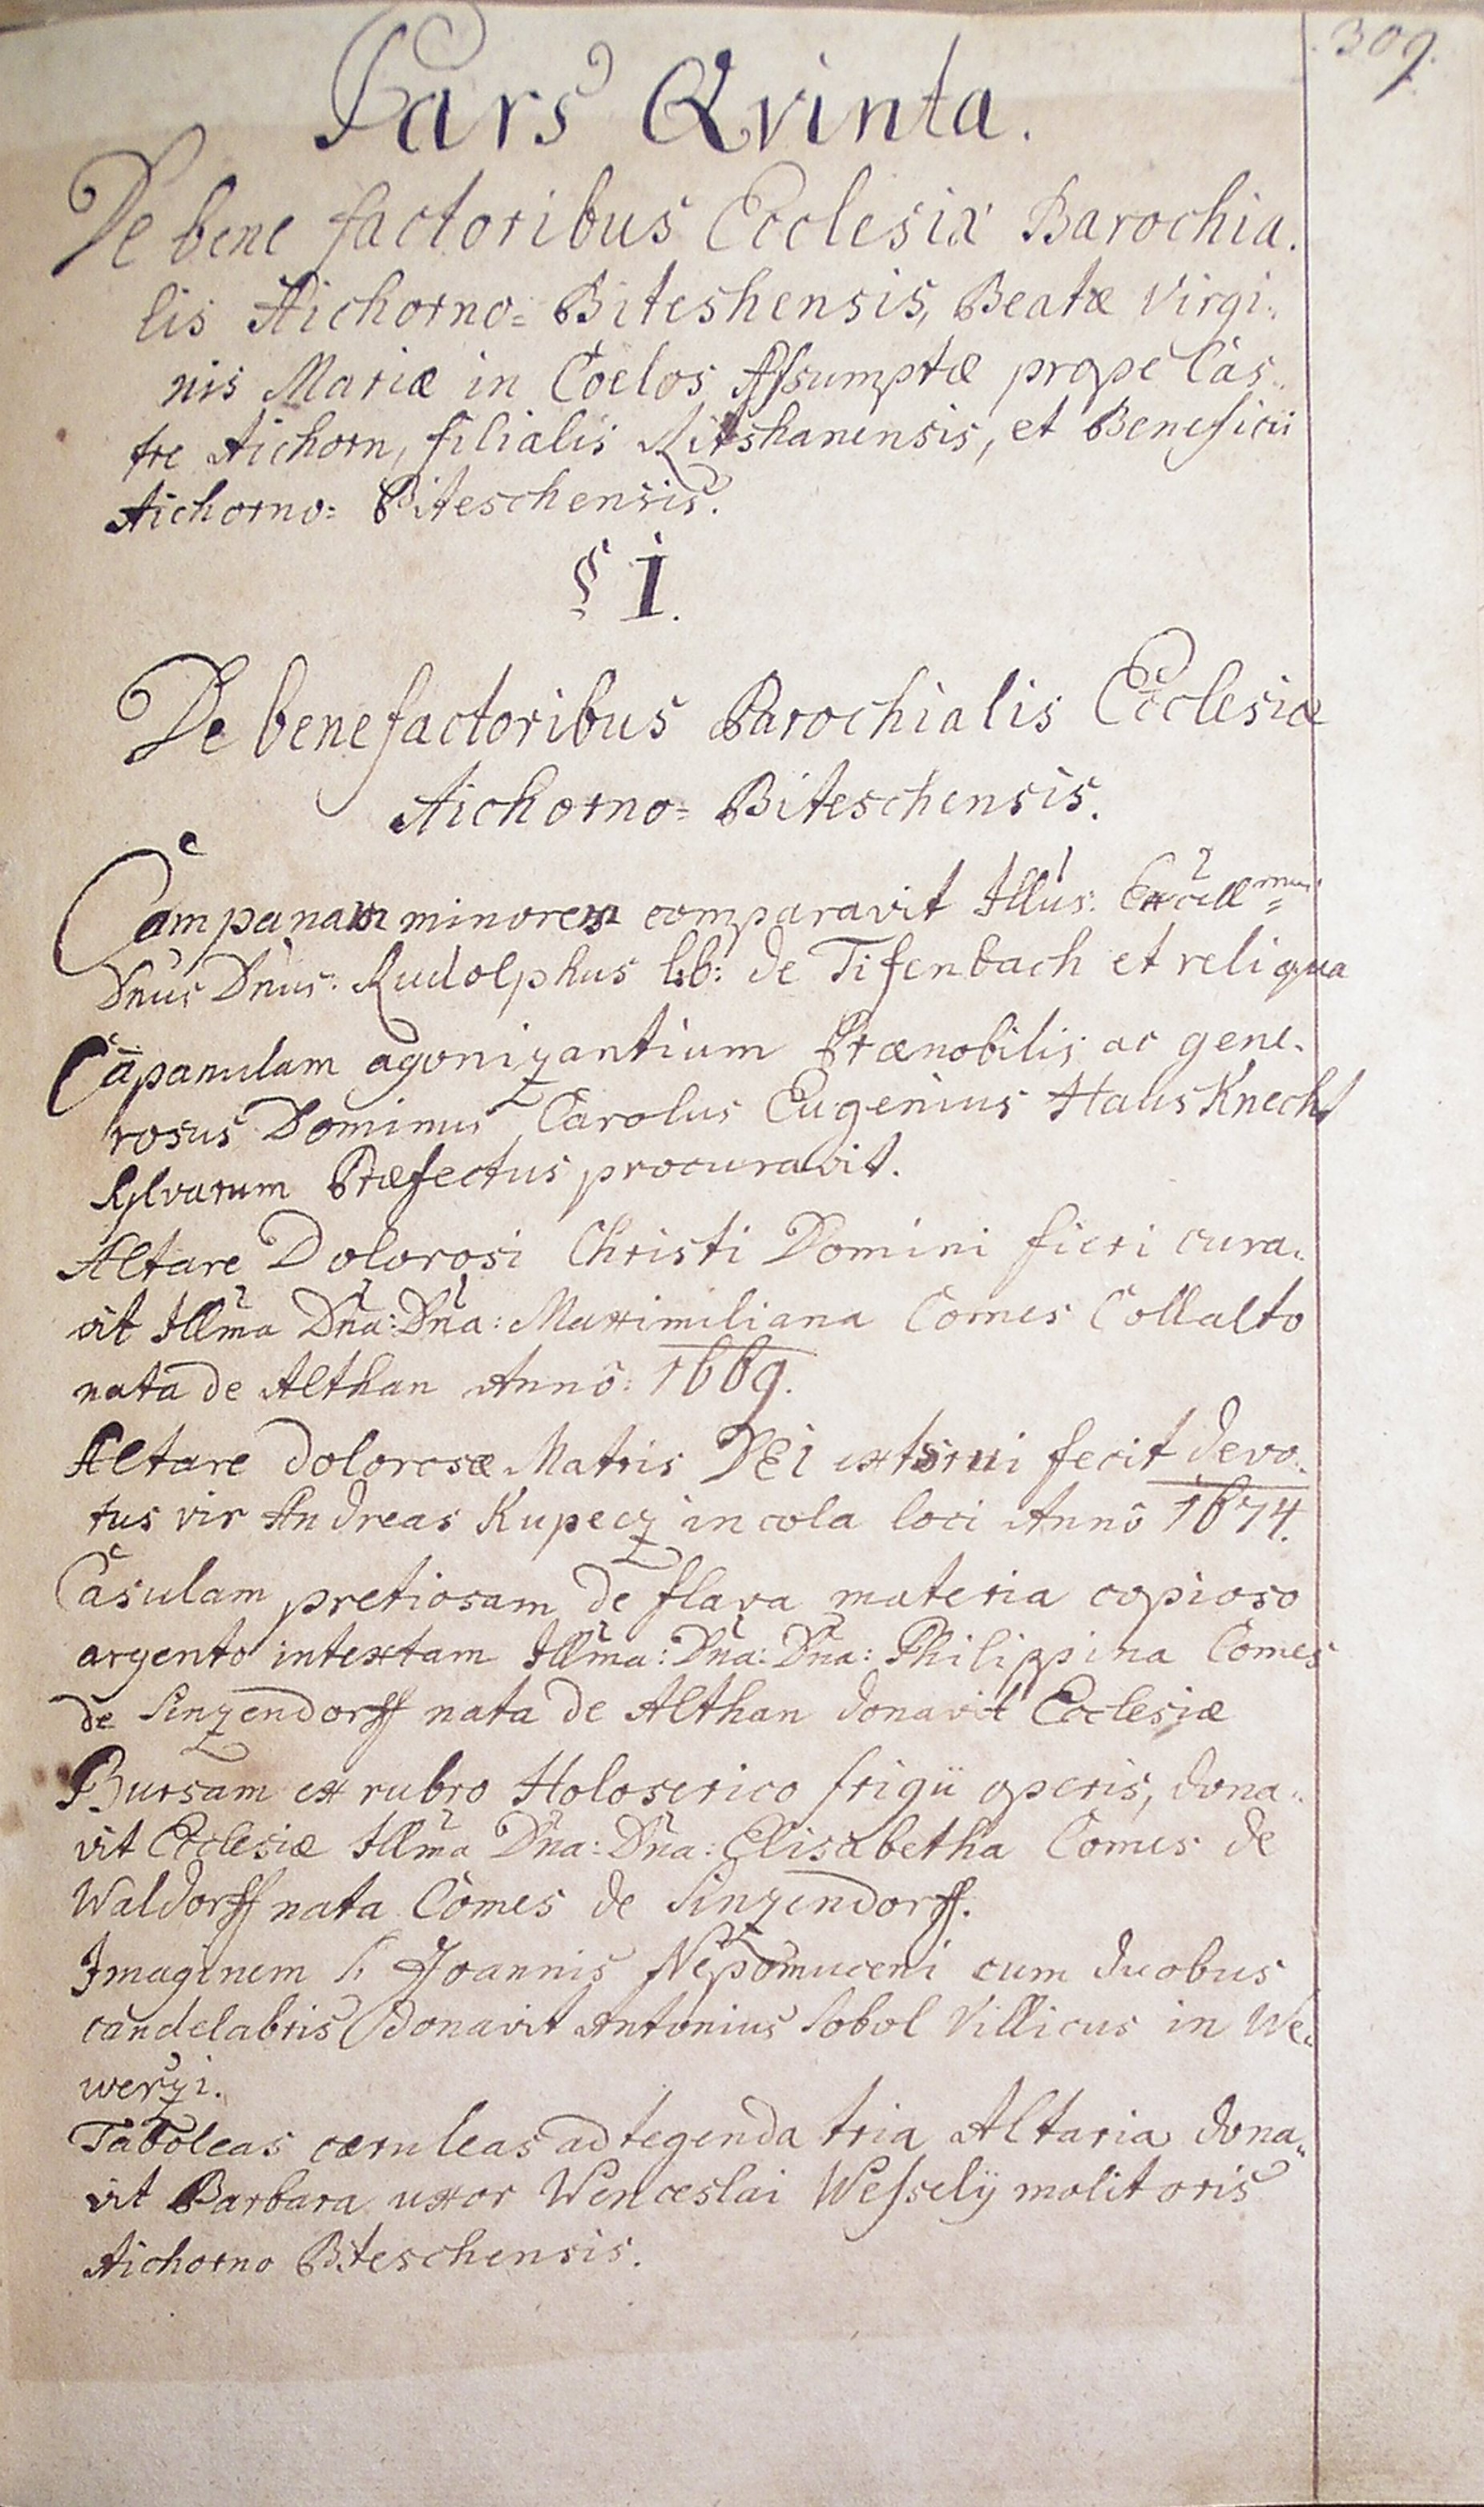 309.
Pars Qvinta.
De bene factoribus Ecclesiæ Parochia.
lis Aichorno= Biteshensis, Beatæ Virgi..
nis Mariæ in Coelos Assumptæ prope Cas..
tre Aichorn, filialis Ritshanensis, et Beneficii
Aichorno= Biteschensis.
§ I.
De benefactoribus Parochialis Ecclesiæ
Aichorno= Biteschensis.
Campanam minorem comparavit Illus: Excell=
Dnus Dnus: Rudolphus lb: de Tifenbach et reliqua
Cāpanulam agonizantium Prænobilis ac gene.
rosus Dominus Carolus Eugenius Haus Knecht
Sylvarum Præfectus procuravit.
Altare Dolorosi Christi Domini fieri cura.
vit Illma Dna: Dna: Maximiliana Comes Collalto
nata de Althan Annô: 1669.
Altare dolorosæ Matris DEi extrui fecit devo.
tus vir Andreas Kupecz incola loci Annô 1674.
Casulam pretiosam de flava materia copioso
argento intextam Illma: Dna: Dna: Philippina Comes
de Sinzendorff nata de Althan donavit Ecclesiæ
Bursam ex rubro Holoserico frigii operis, dona..
vit Ecclesiæ Illma Dna: Dna: Elisabetha Comes de
Waldorff nata Comes de Sinzendorff.
Imaginem S. Joannis Nepomuceni cum duobus
candelabris donavit Antonius Sobol Villicus in We..
werzi.
Taboleas cæruleas ad tegenda tria Altaria dona..
vit Barbara uxor Wenceslai Wesselÿ molitoris
Aichorno Biteschensis.